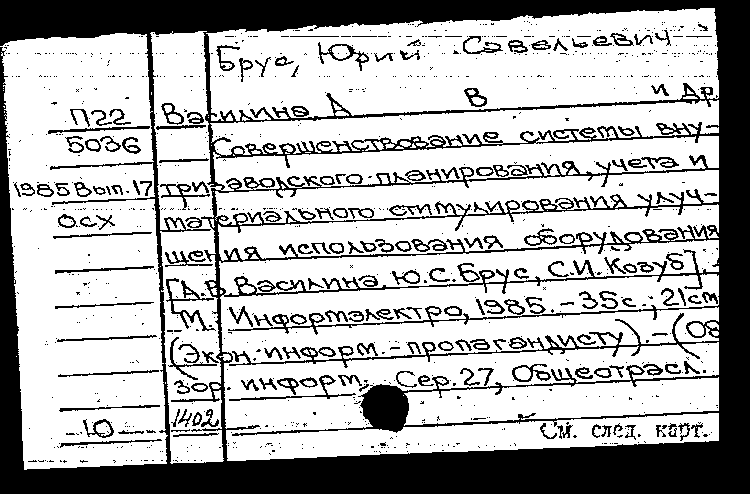 Брус, Юрий Савельевич
П22 Василина, А В и др
5036 Совершенствование системы вну-
1985 Вып. 17 тризаводского планирования, учета и
осх материального стимулирования улуч-
шения использования оборудования
[А.В. Василина, Ю.С. Брус, С.И. Козуб]. -
М.: Информэлектро, 1985. - 35 с.; 21 см
(Экон.-информ.-пропагандисту). - (Об
зор. информ. Сер. 27, Общеотрасл.
10 1402
См. след. карт.